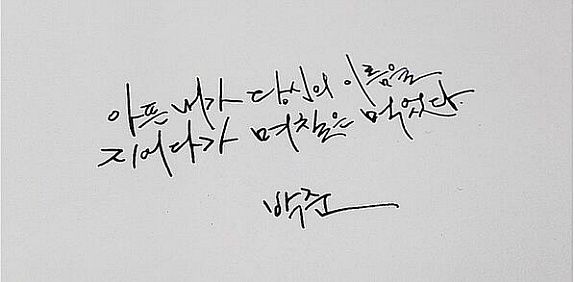 아픈 내가 당신의 이름을
지어다가 며칠은 먹었다.
박준